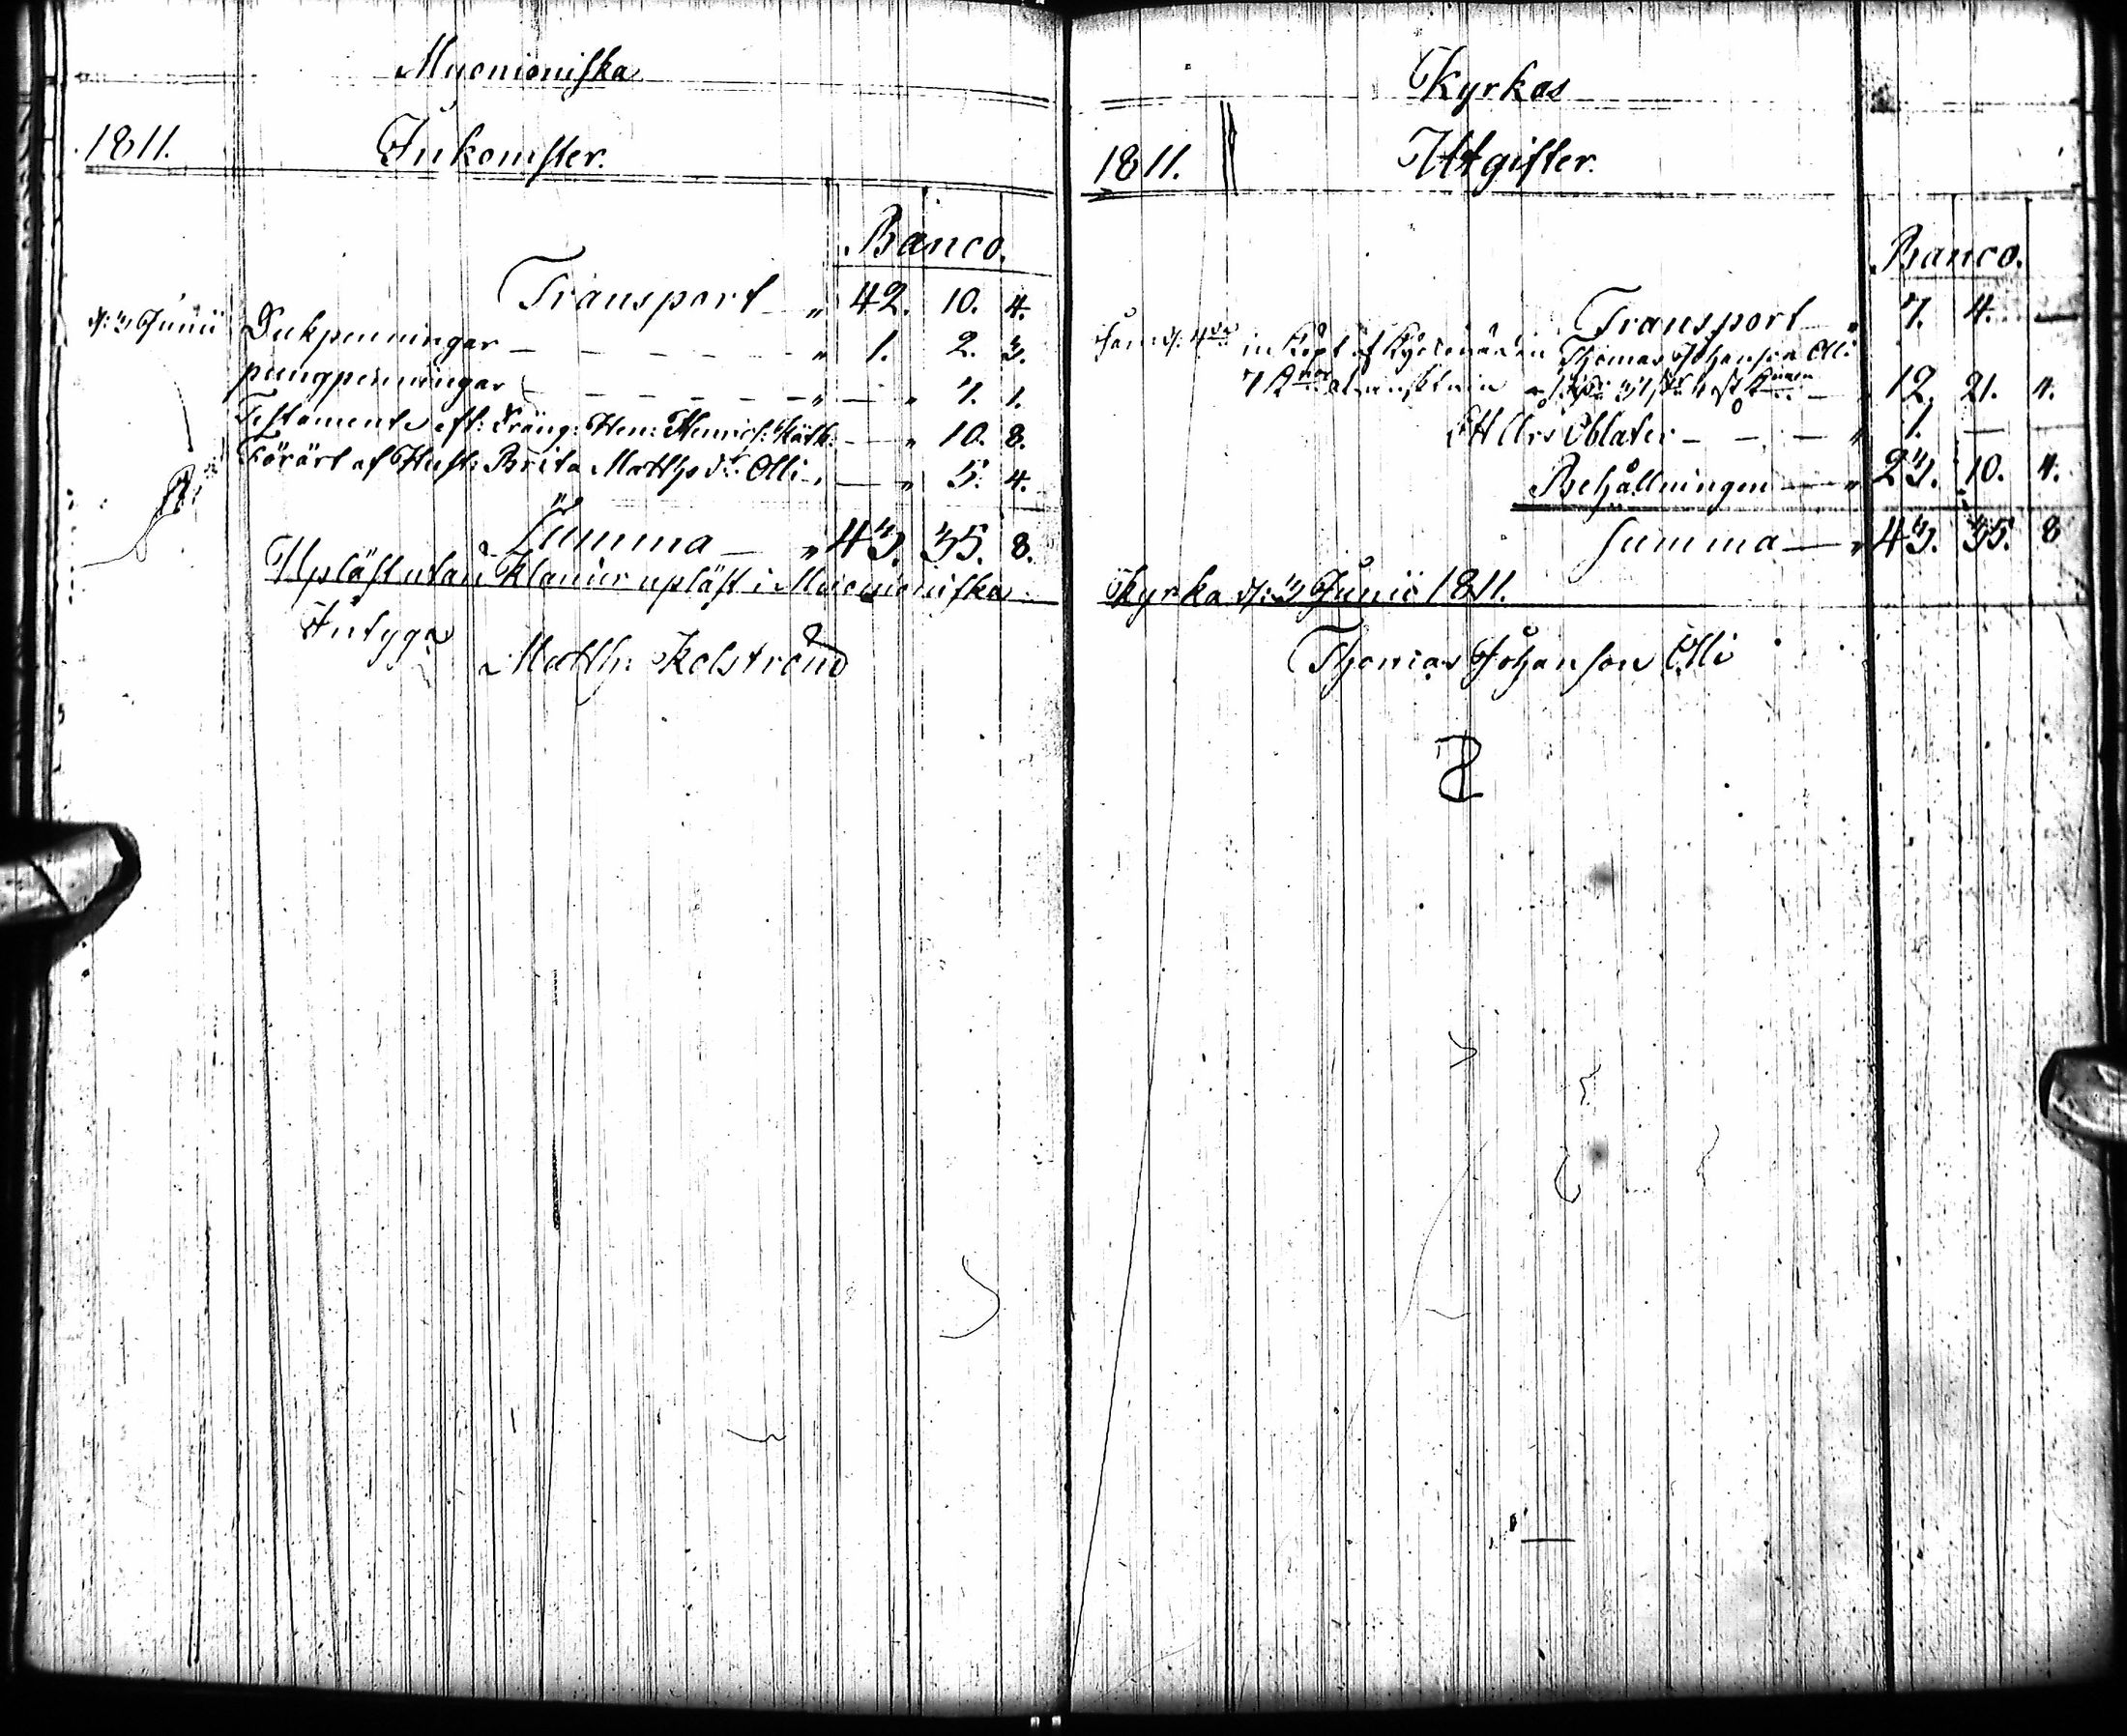 Muonioniska
1811. Inkomster.
Banco.
Transport — " 42. 10. 4.
d: 3 Junii Dukpenningar — — — — — " 1. 2. 3.
pungpenningar — — — — — " — " 7. 1.
Testamente eft: Dräng: Hen: Henrics: — " 10. 8.
Förärt af Hust: Brita Matthsdr Olli — " 5. 4.
Summa — " 43. 35. 8.
Upläst utan Klander upläst i Muonioniska
Intyga
Matth: Kolström
Kyrkas
1811. Utgifter.
Banco.
Transport " 7. 4. —
inköpt af Kyrkovärden Thomas Johanson Olli
7 Kannor 12. 21. 4.
Ett års Oblater — — — " 1. — —
Behållningen — " 23. 10. 4.
Summa — " 43. 35. 8
Kyrka d: 3 Junii 1811.
Thomas Johanson Olli